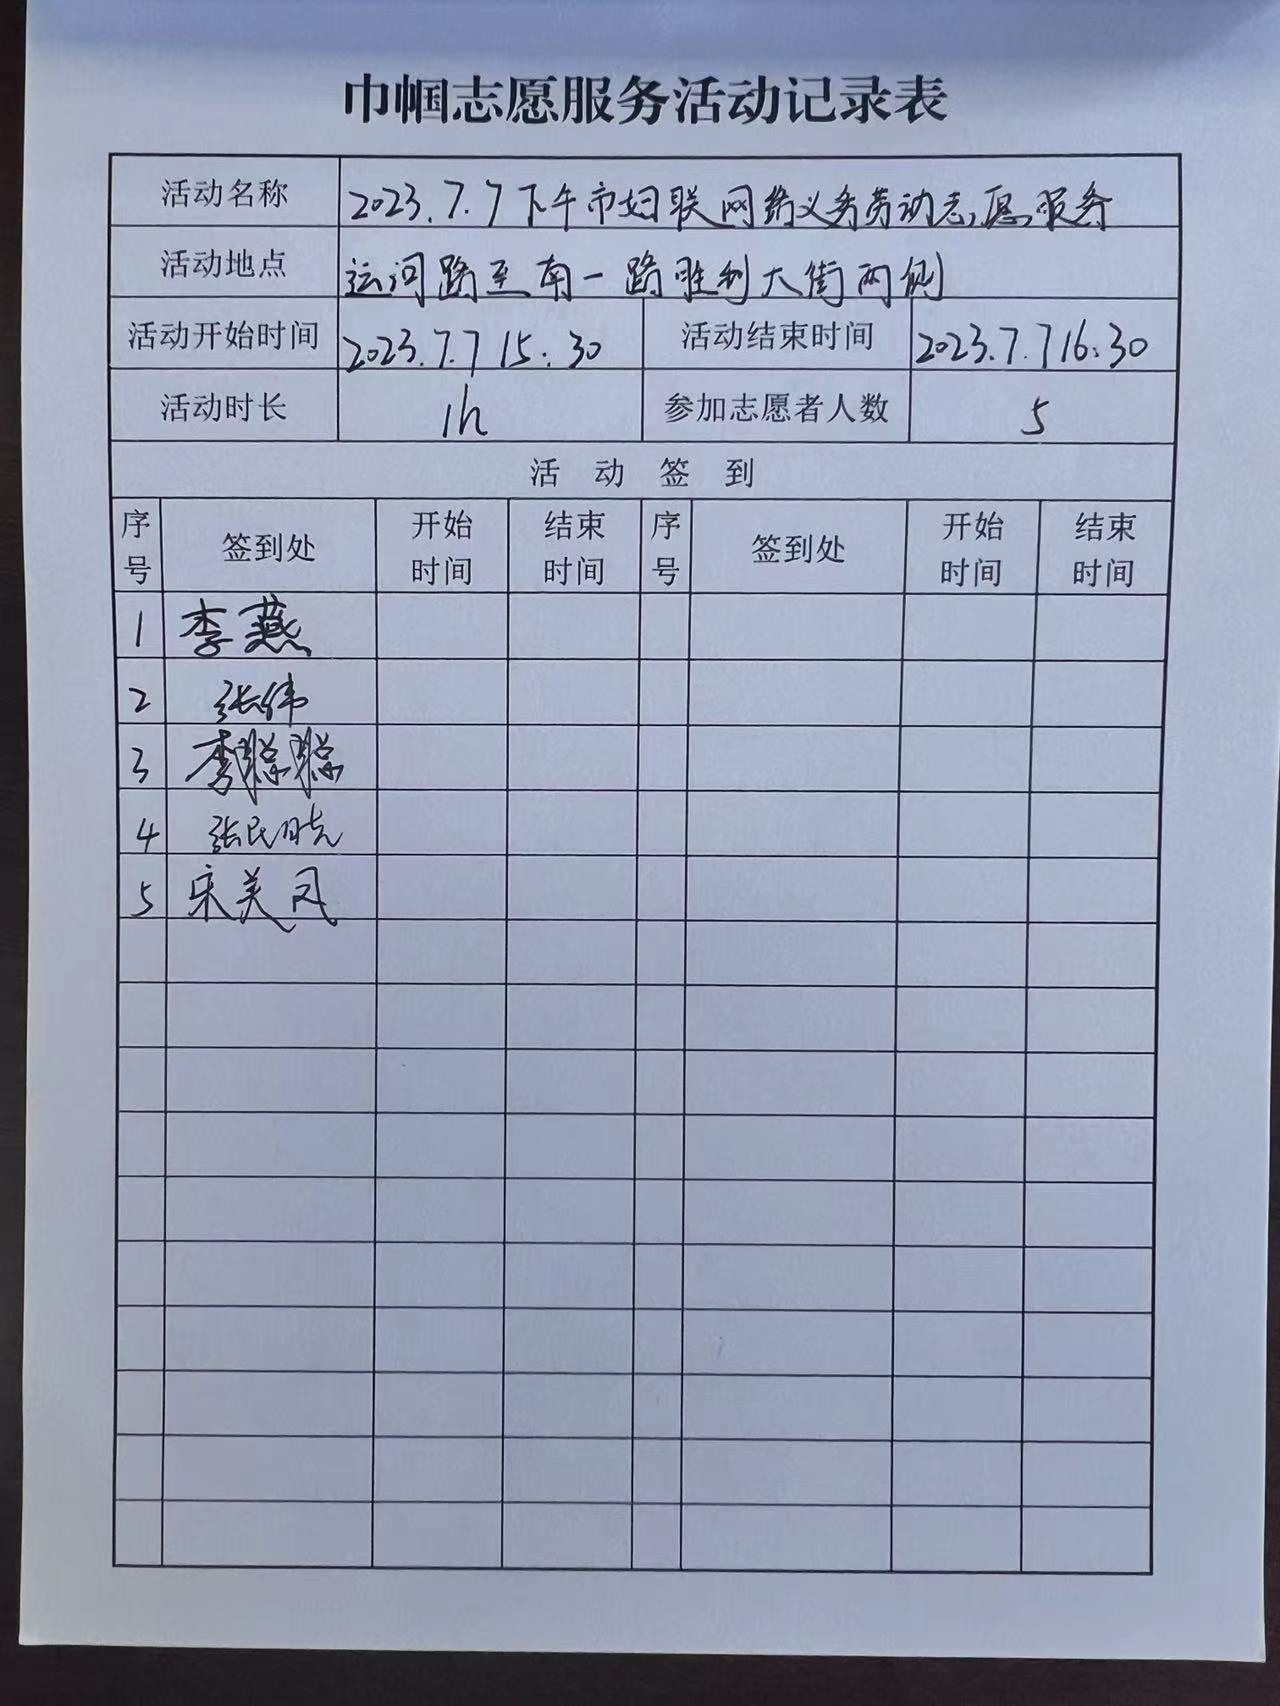 巾帼志愿服务活动记录表
活动名称 2023.7.7下午市妇联网络义务劳动志愿服务
活动地点 运河路至南一路胜利大街两侧
活动开始时间 2023.7.7 15:30 活动结束时间 2023.7.7 16:30
活动时长 1h 参加志愿者人数 5
活 动 签 到
序号 签到处 开始时间 结束时间 序号 签到处 开始时间 结束时间
1 李燕
2 张伟
3 李聪聪
4 张民晓
5 宋美凤